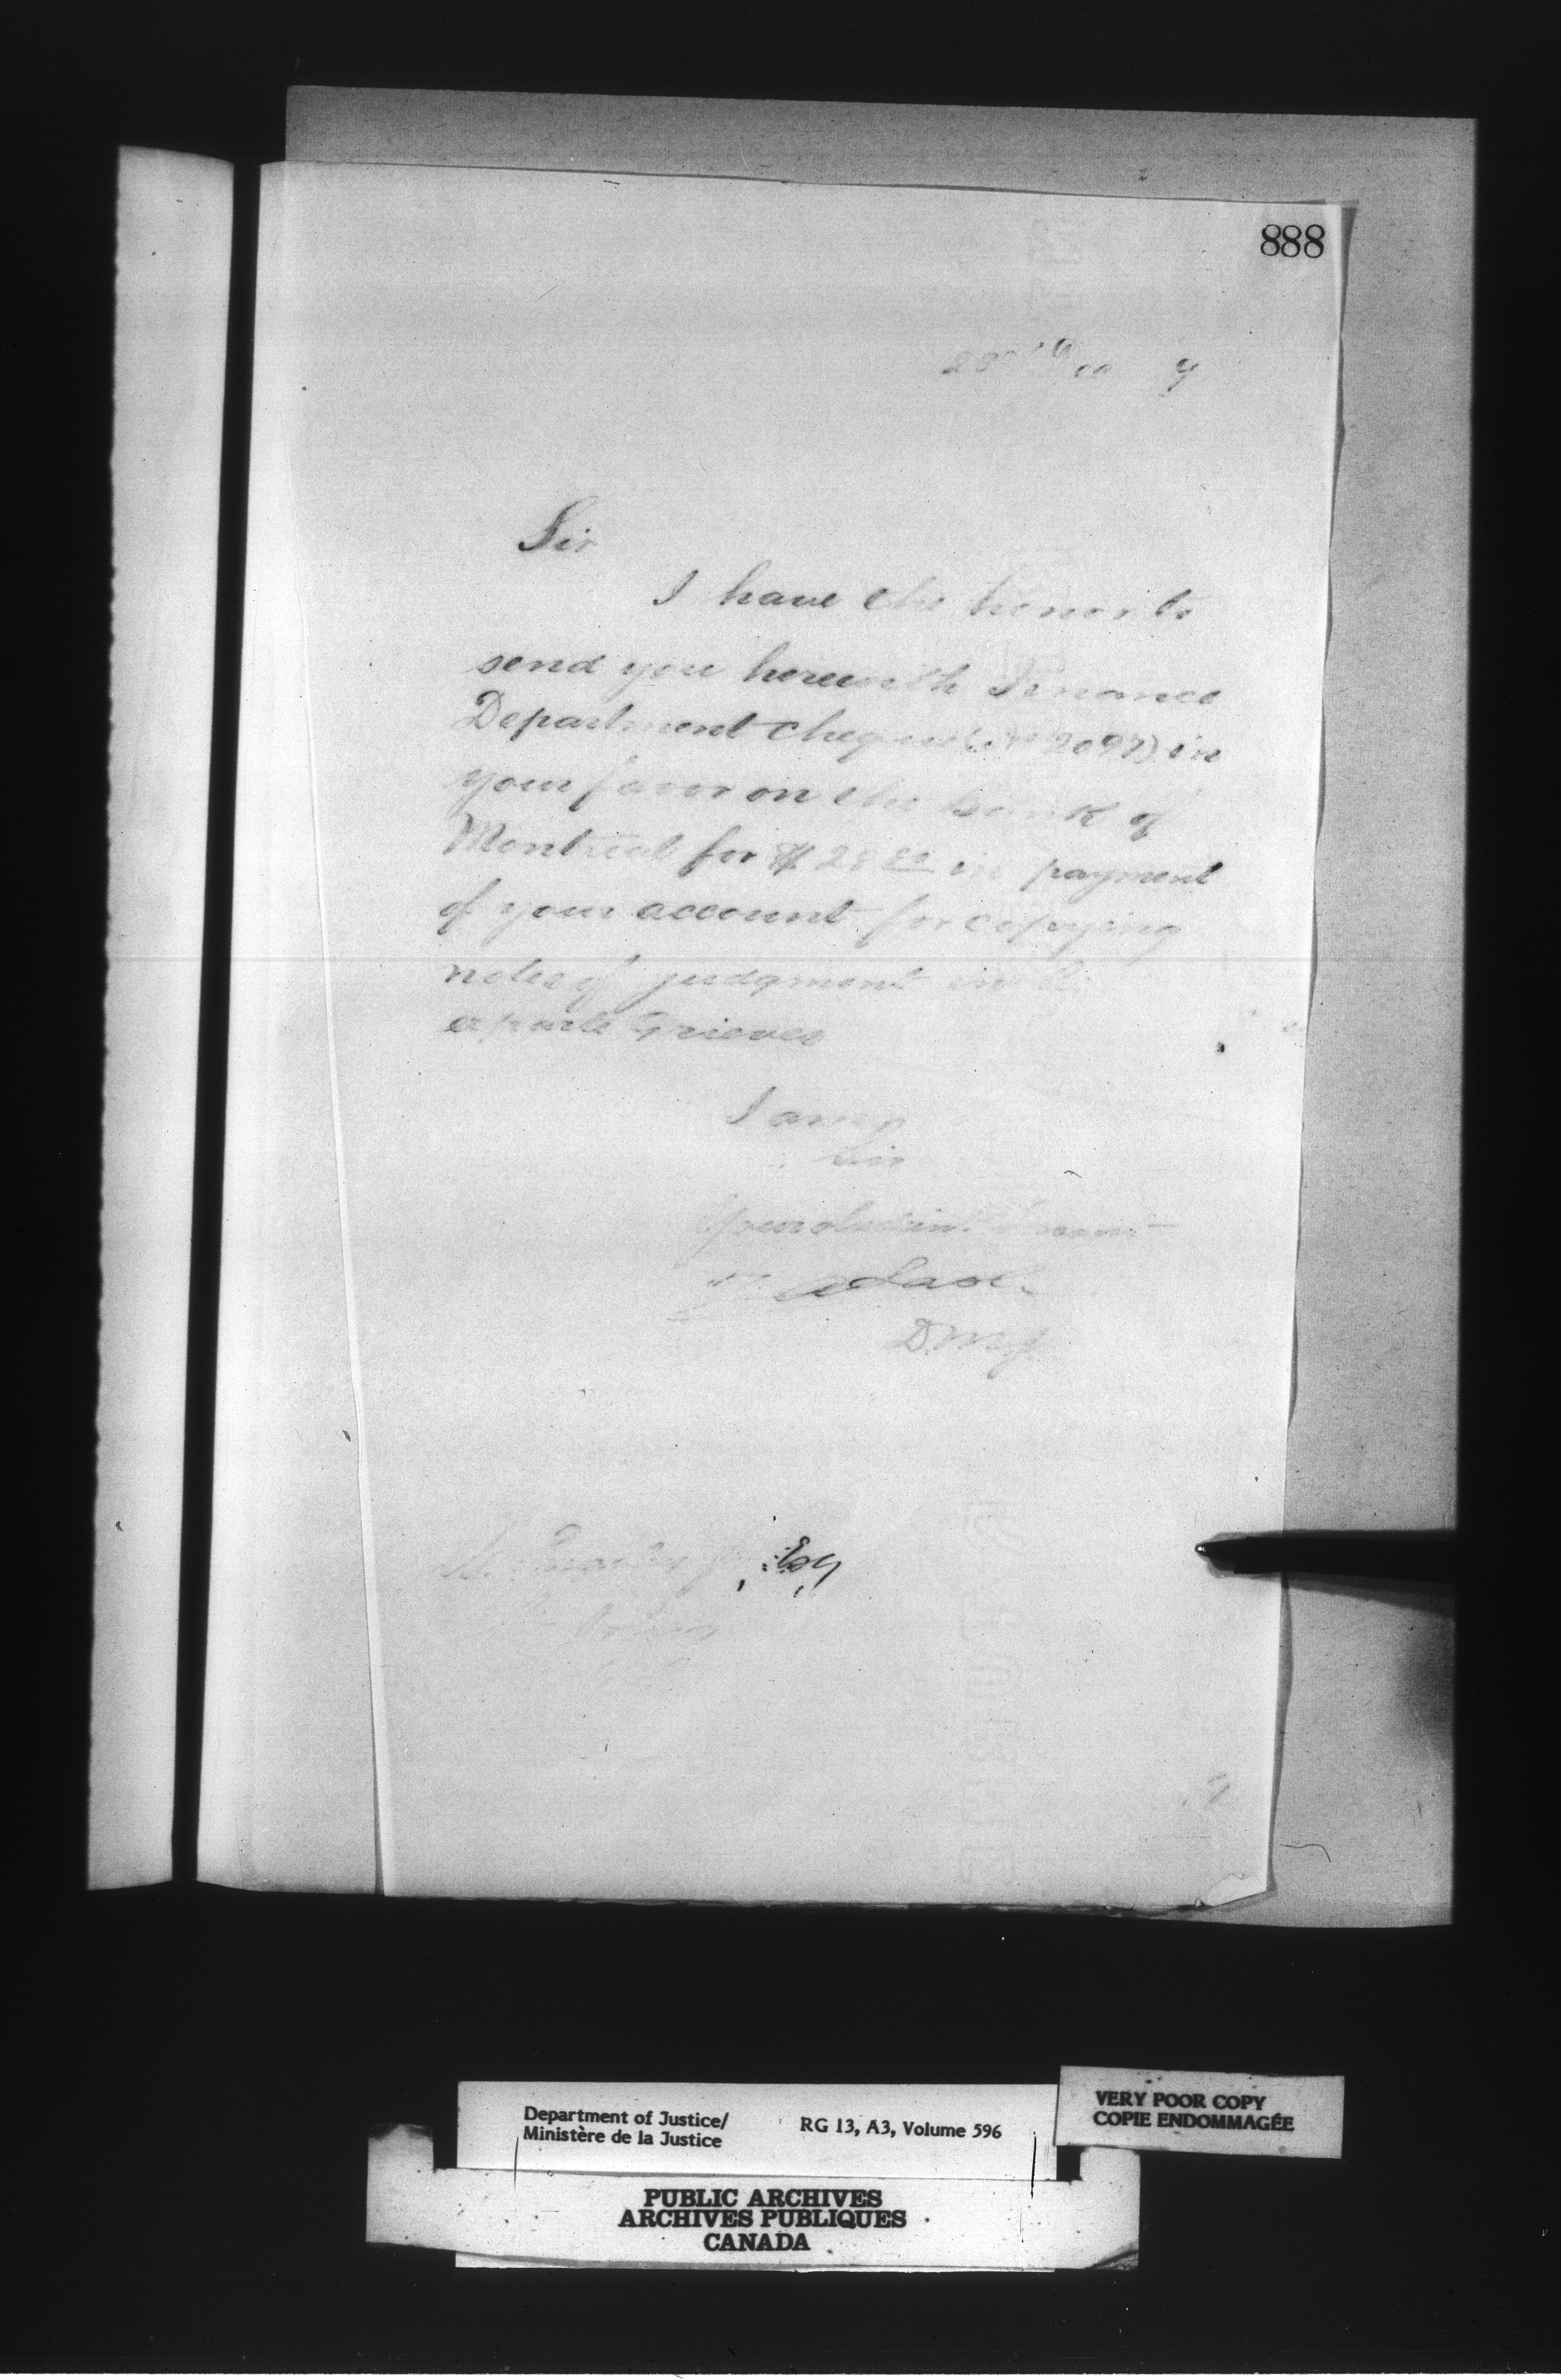 888
23rd Dec 9
Sir
I have the honor to
send you herewith Finance
Department cheque (No 2097) in
your favor on the bank of
Montreal for $28 in payment
of your account for copying
notes of judgment in
exparte Grieves
I am
Sir
Your obedient Servant
Lash
D.M.J.
Esq
Department of Justice/
Ministère de la Justice
RG 13, A3, Volume 596
VERY POOR COPY
COPIE ENDOMMAGÉE
PUBLIC ARCHIVES
ARCHIVES PUBLIQUES
CANADA